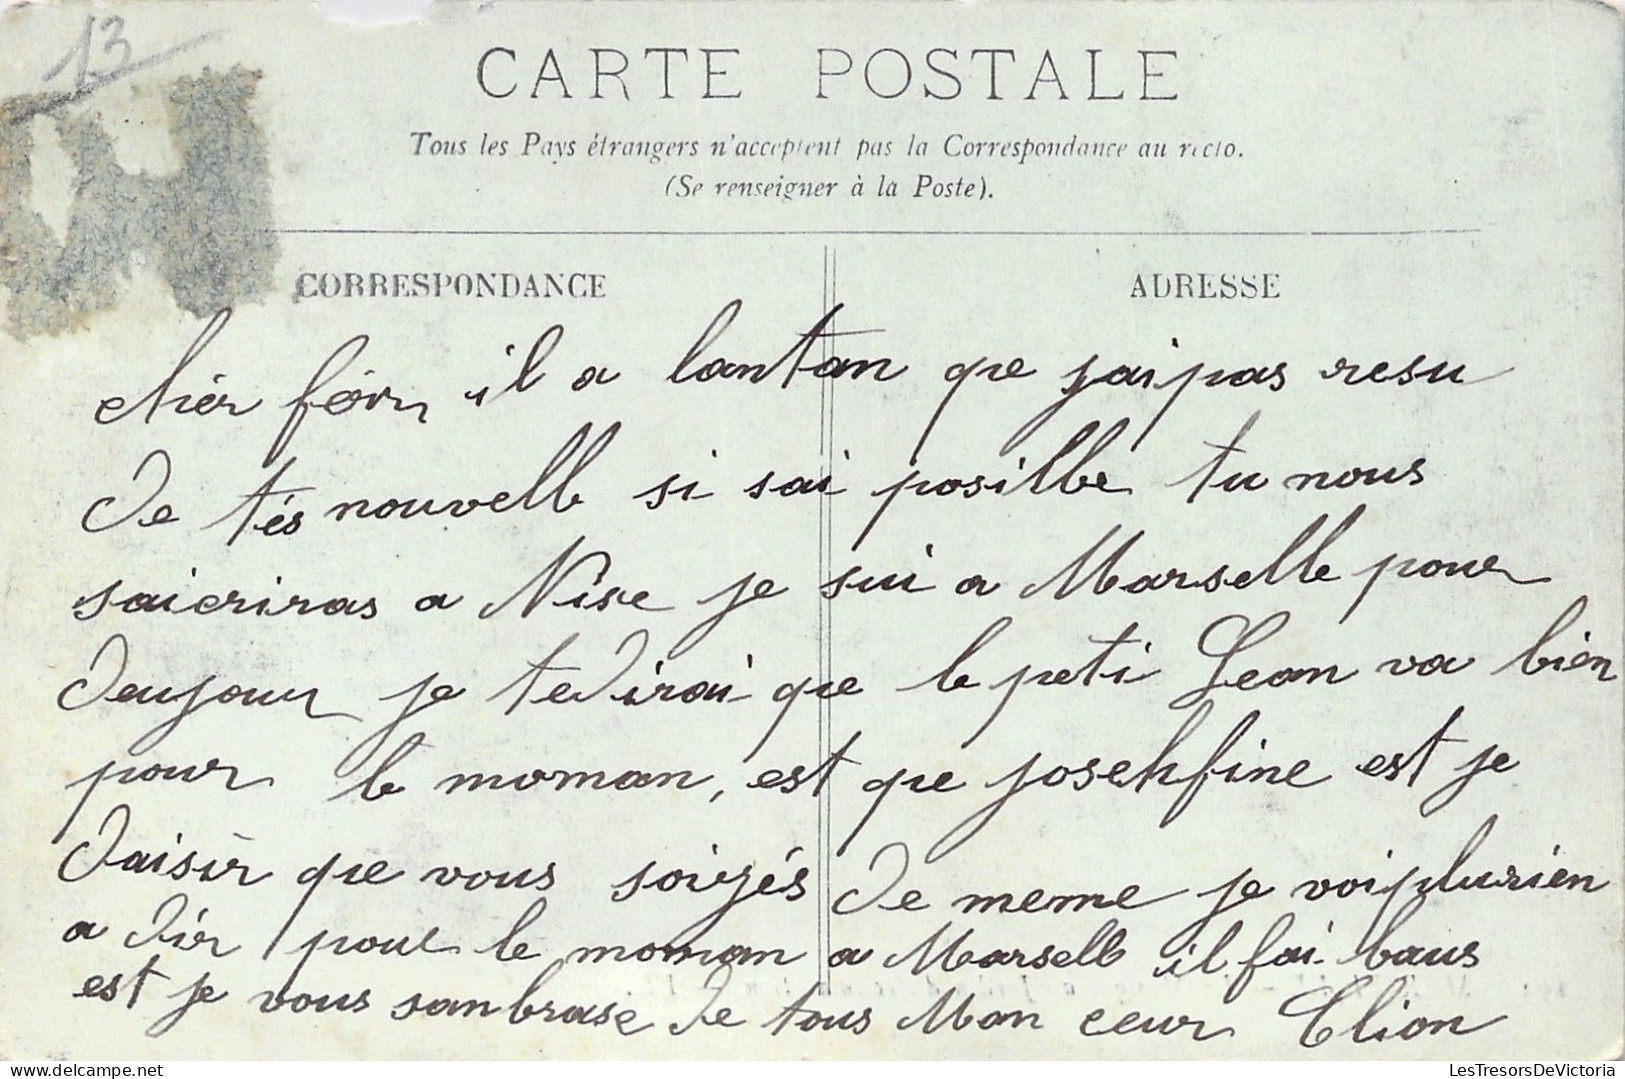 13
CARTE POSTALE
Tous les Pays étrangers n'acceptent pas la Correspondance au recto.
(Se renseigner à la Poste).
CORRESPONDANCE
ADRESSE
chier il a lantan que jai pas resu
De tés nouvelle si sai posilbe tu nous
saicriras a Nise je sui a Marselle pour
je tedirai que le peti Jean va bien
pour le moman, est que josehfine est je
Daisir que vous soigés De meme je voi plurien
a Dir pour le moman a Marselle il fai baus
est je vous sanbrase De tous Mon ceur Clion
LesTresorsDeVictoria